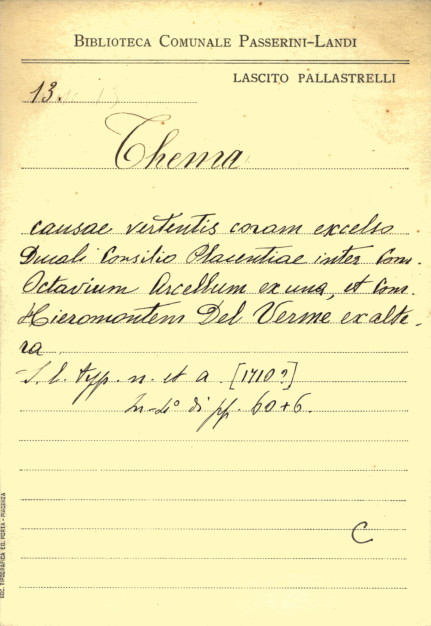 BIBLIOTECA COMUNALE PASSERINI-LANDI
LASCITO PALLASTRELLI
13.
Thema
causae vertentis coram excelso
Ducali Consilio Placentiae inter Com.
Octavium Arcellum ex una, et Com.
Hieromontem Del Verme ex alte-
ra
S. l. typ. n. et a. [1710?]
In-4° di pp. 60+6.
C
SOC. TIPOGRAFICA ED. PORTA - PIACENZA